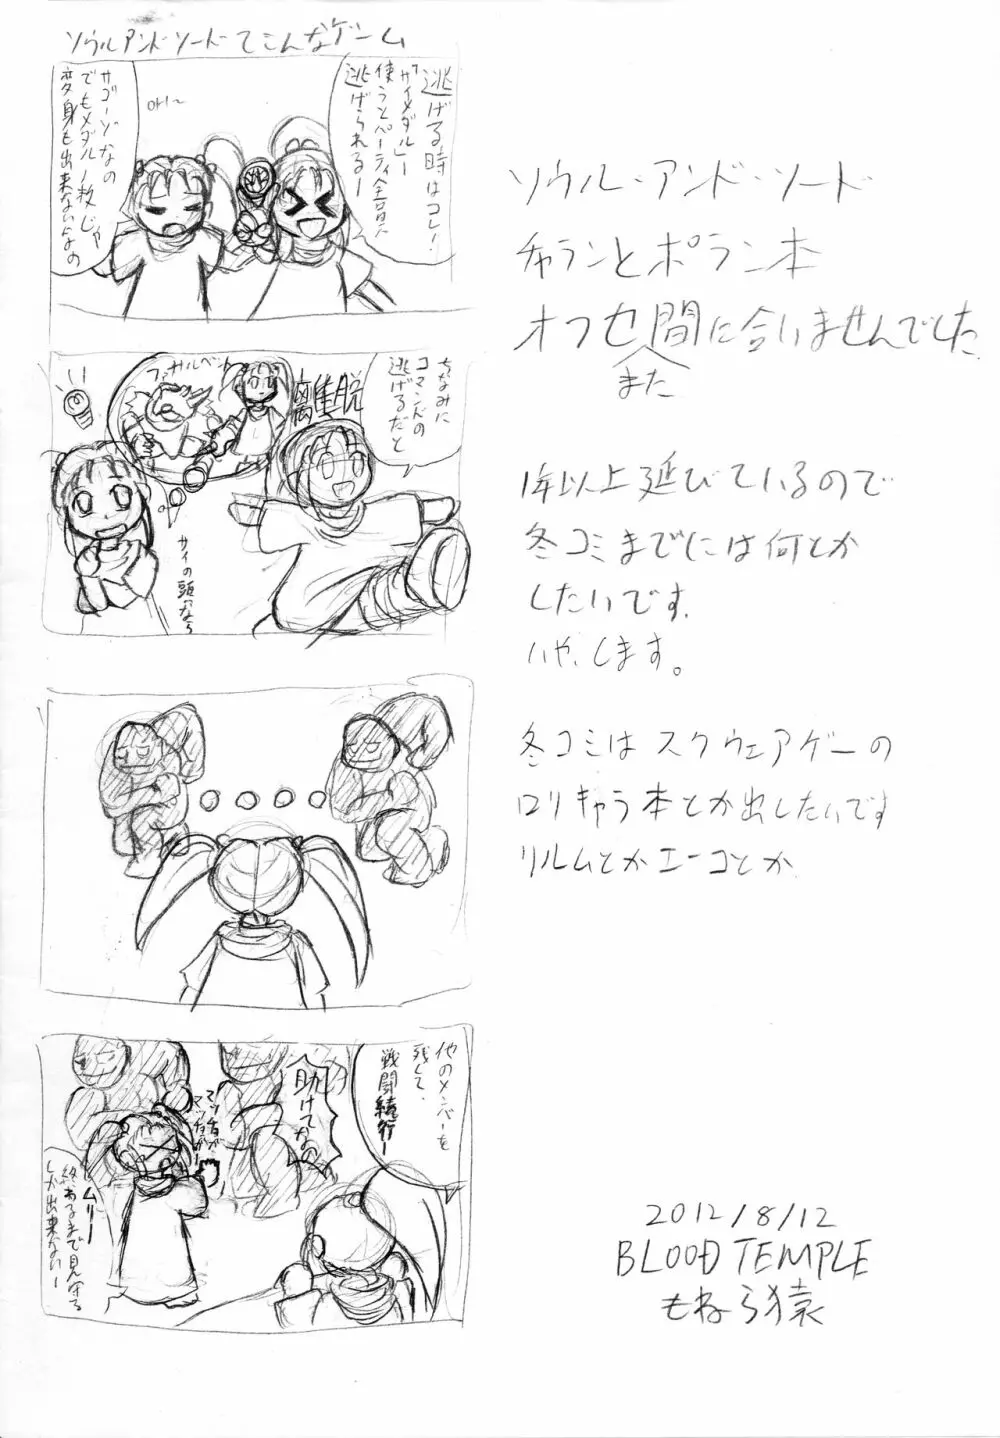 ソウルアンドソードってこんなゲーム
逃げる時はコレ!
「サイメダル」ー
使うとパーティ全員
逃げられるー
サゴーゾなの
でもメダル1枚じゃ
変身も出来ないなの
ちなみに
コマンドの
逃げるだと
離脱
サイの頭なら
他のメンバーを
残して、
戦闘続行ー
助けてなの
ムリー
終わるまで見守る
しか出来ないー
ソウル・アンド・ソード
チャランとポラン本
オフセ間に合いませんでした
また
1年以上延びているので
冬コミまでには何とか
したいです
いや、します。
冬コミはスクウェアゲーの
ロリキャラ本とか出したいです
リルムとかエーコとか
2012/8/12
BLOOD TEMPLE
もねら猿